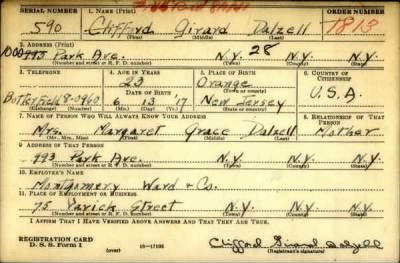 SERIAL NUMBER 1. NAME (Print) ORDER NUMBER
590 Clifford Girard Dalzell 7813
(First) (Middle) (Last)
2. ADDRESS (Print)
1000 993 Park Ave. N.Y. 28 N.Y. N.Y.
(Number and street or R. F. D. number) (Town) (County) (State)
3. TELEPHONE 4. AGE IN YEARS 5. PLACE OF BIRTH 6. COUNTRY OF CITIZENSHIP
23 Orange
Butterfield 8-0960 6 13 '17 New Jersey U.S.A.
(Exchange) (Number) (Mo.) (Day) (Yr.) (State or country)
7. NAME OF PERSON WHO WILL ALWAYS KNOW YOUR ADDRESS 8. RELATIONSHIP OF THAT PERSON
Mrs. Margaret Grace Dalzell Mother
(Mr., Mrs., Miss) (First) (Middle) (Last)
9. ADDRESS OF THAT PERSON
993 Park Ave. N.Y. N.Y. N.Y.
(Number and street or R. F. D. number) (Town) (County) (State)
10. EMPLOYER'S NAME
Montgomery Ward & Co.
11. PLACE OF EMPLOYMENT OR BUSINESS
75 Varick Street N.Y. N.Y. N.Y.
(Number and street or R. F. D. number) (Town) (County) (State)
I AFFIRM THAT I HAVE VERIFIED ABOVE ANSWERS AND THAT THEY ARE TRUE.
REGISTRATION CARD
D. S. S. Form 1 (over) 16-17105 Clifford Girard Dalzell
(Registrant's signature)